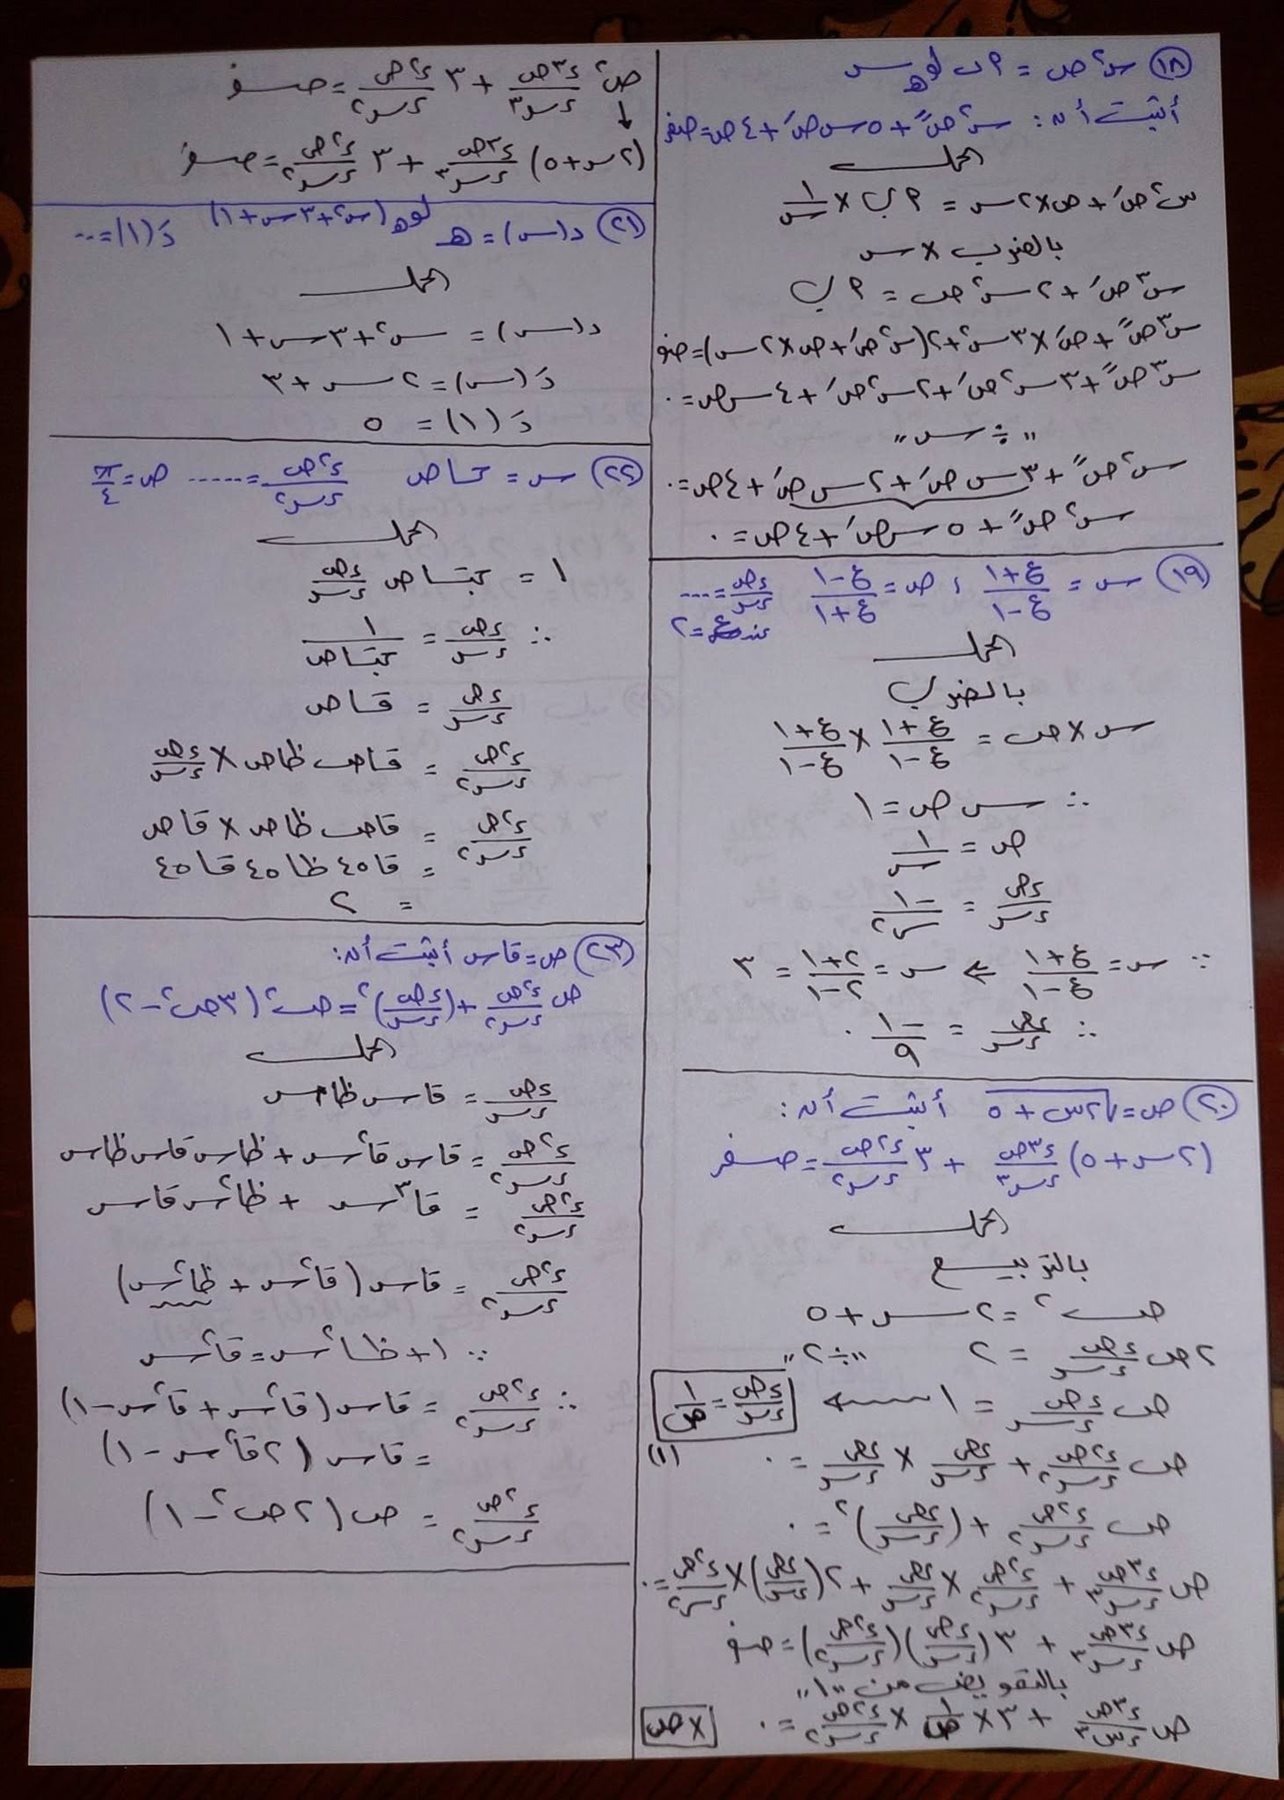 ١٨ س٢ ص = ٩ ب لوهـ س
أثبت أنه: س٢ ص″ + ٥ س ص′ + ٤ ص = صفر
الحل
س٢ ص′ + ص × ٢ س = ٩ ب × ١/س
بالضرب × س
س٣ ص′ + ٢ س٢ ص = ٩ ب
س٣ ص″ + ص′ × ٣ س٢ + ٢ (س٢ ص′ + ص × ٢ س) = صفر
س٣ ص″ + ٣ س٢ ص′ + ٢ س٢ ص′ + ٤ س ص = ٠
" ÷ س "
س٢ ص″ + ٣ س ص′ + ٢ س ص′ + ٤ ص = ٠
س٢ ص″ + ٥ س ص′ + ٤ ص = ٠
١٩ س = (ع+١)/(ع-١) ، ص = (ع-١)/(ع+١) ءص/ءس = ...
عند ع = ٢
الحل
بالضرب
س × ص = (ع+١)/(ع-١) × (ع+١)/(ع-١)
∴ س ص = ١
ص = ١/س
ءص/ءس = -١/س٢
∵ س = (ع+١)/(ع-١) ⇐ س = (٢+١)/(٢-١) = ٣
∴ ءص/ءس = -١/٩ .
٢٠ ص = √(٢س + ٥) أثبت أنه:
(٢س + ٥) ء٣ص/ءس٣ + ٣ ء٢ص/ءس٢ = صفر
الحل
بالتربيع
ص٢ = ٢ س + ٥
٢ ص ءص/ءس = ٢ " ÷ ٢ "
ص ءص/ءس = ١ ← ءص/ءس = ١/ص
ص ء٢ص/ءس٢ + ءص/ءس × ءص/ءس = ٠ (١)
ص ء٢ص/ءس٢ + (ءص/ءس)٢ = ٠
ص ء٣ص/ءس٣ + ء٢ص/ءس٢ × ءص/ءس + ٢ (ءص/ءس) × ء٢ص/ءس٢ = ٠
ص ء٣ص/ءس٣ + ٣ (ءص/ءس)(ء٢ص/ءس٢) = صفر
بالتعويض من "١"
ص ء٣ص/ءس٣ + ٣ × ١/ص × ء٢ص/ءس٢ = ٠ × ص
ص٢ ء٣ص/ءس٣ + ٣ ء٢ص/ءس٢ = صفر
↓
(٢س + ٥) ء٣ص/ءس٣ + ٣ ء٢ص/ءس٢ = صفر
٢١ د(س) = هـ لوهـ (س٢ + ٣س + ١) دَ(١) = ...
الحل
د(س) = س٢ + ٣س + ١
دَ(س) = ٢ س + ٣
دَ(١) = ٥
٢٢ س = حاص ء٢ص/ءس٢ = ...... ص = π/٤
الحل
١ = جتاص ءص/ءس
∴ ءص/ءس = ١/جتاص
ءص/ءس = قاص
ء٢ص/ءس٢ = قاص ظاص × ءص/ءس
ء٢ص/ءس٢ = قاص ظاص × قاص
= قا٤٥ ظا٤٥ قا٤٥
= ٢
٢٣ ص = قاس أثبت أنه:
ص ء٢ص/ءس٢ + (ءص/ءس)٢ = ص٢ (٣ص٢ - ٢)
الحل
ءص/ءس = قاس ظاس
ء٢ص/ءس٢ = قاس قا٢س + ظاس قاس ظاس
ء٢ص/ءس٢ = قا٣س + ظا٢س قاس
ء٢ص/ءس٢ = قاس (قا٢س + ظا٢س)
∵ ١ + ظا٢س = قا٢س
∴ ء٢ص/ءس٢ = قاس (قا٢س + قا٢س - ١)
= قاس (٢قا٢س - ١)
ء٢ص/ءس٢ = ص (٢ص٢ - ١)